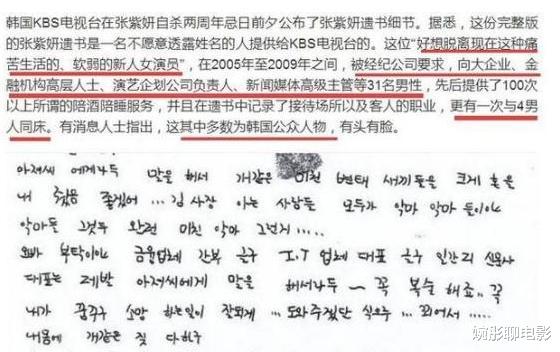 韩国KBS电视台在张紫妍自杀两周年忌日前夕公布了张紫妍遗书细节。据悉，这份完整版
的张紫妍遗书是一名不愿意透露姓名的人提供给KBS电视台的。这位“好想脱离现在这种痛
苦生活的、软弱的新人女演员”，在2005年至2009年之间，被经纪公司要求，向大企业、金
融机构高层人士、演艺企划公司负责人、新闻媒体高级主管等31名男性，先后提供了100次
以上所谓的陪酒陪睡服务，并且在遗书中记录了接待场所以及客人的职业，更有一次与4男
人同床。有消息人士指出，这其中多数为韩国公众人物，有头有脸。
아저씨 에게나두 말을 해서 개같은 미친 변태 새끼들을 크게 혼을
내 줬음 좋겠어... 김사장 아는 사람들 모두가 악마 악마 들이야
악마들 그것두 완전 미친 악마
오빠 부탁이야 금융업체 간부 I.T 업체 대표 신문사
대표는 제발 아저씨에게 말을 해서나두 ~ 꼭 복수 해죠.. 꼭
내가 꿈꾸구 소망 하는일이 잘되게 ...
내몸에 개같은 짓 다하구
婉彤聊电影